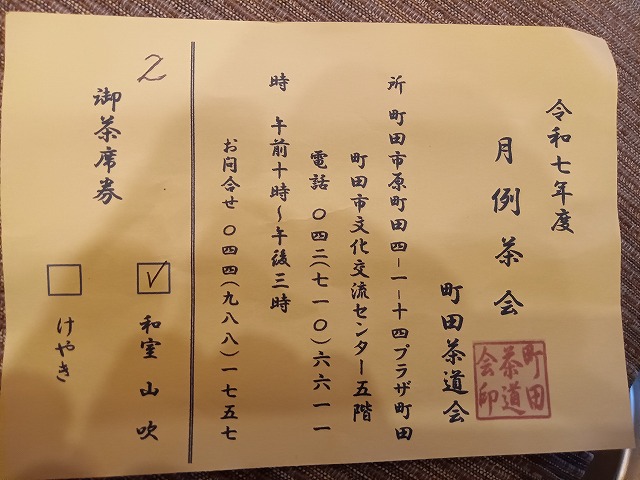 令和七年度
月例茶会
町田茶道会
町田茶道会印
所 町田市原町田四-一-十四プラザ町田
町田市文化交流センター五階
電話 〇四二(七一〇)六六一一
時 午前十時〜午後三時
お問合せ 〇四四(九八八)一七五七
2
御茶席券
和室 山吹
けやき